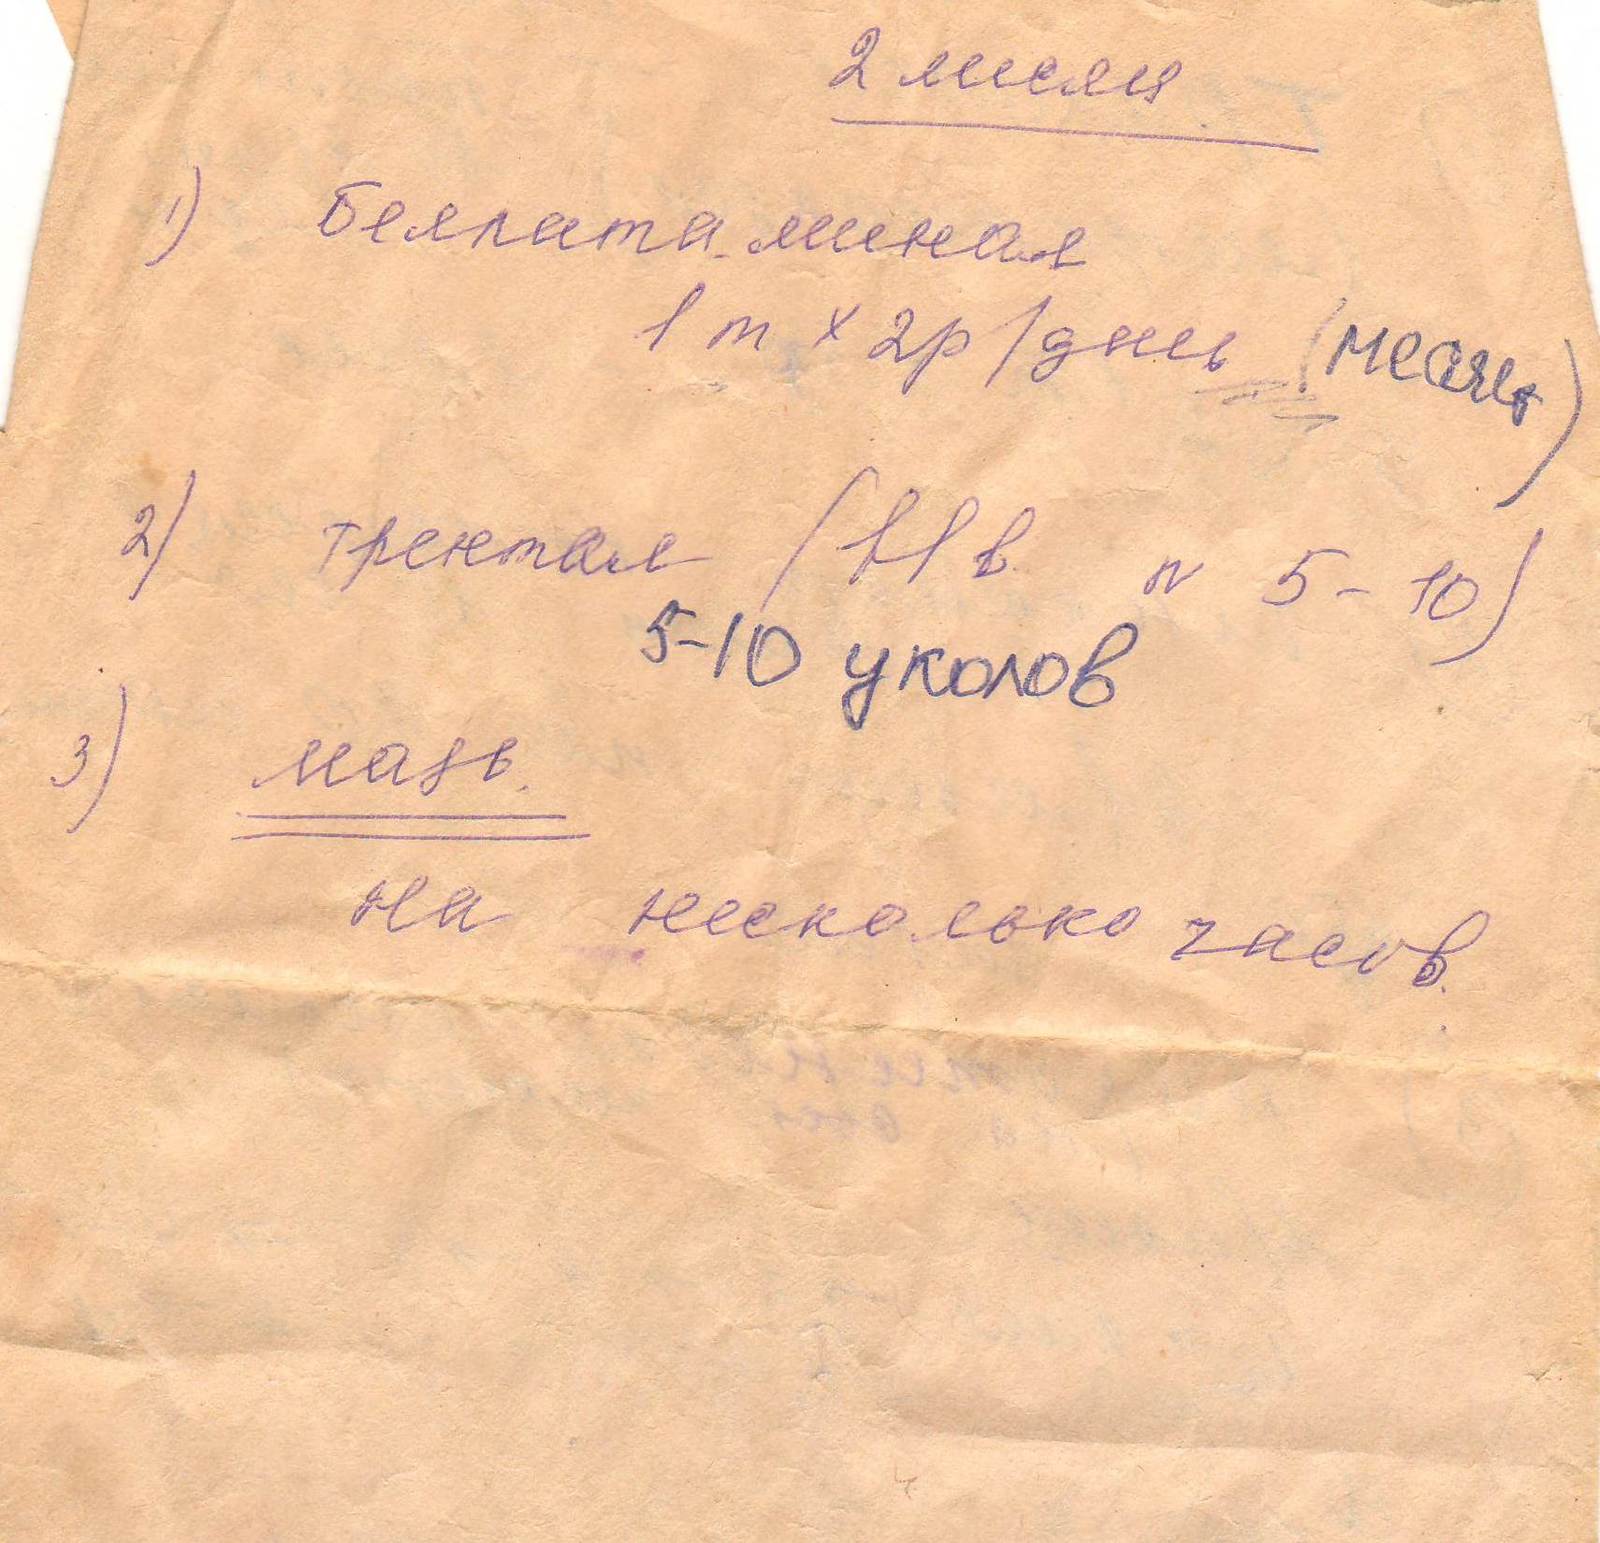 2 июля
1) Беллатаминал
1 т х 2р/день (месяц)
2) трентал (в/в N 5-10)
5-10 уколов
3) мазь.
на несколько часов.